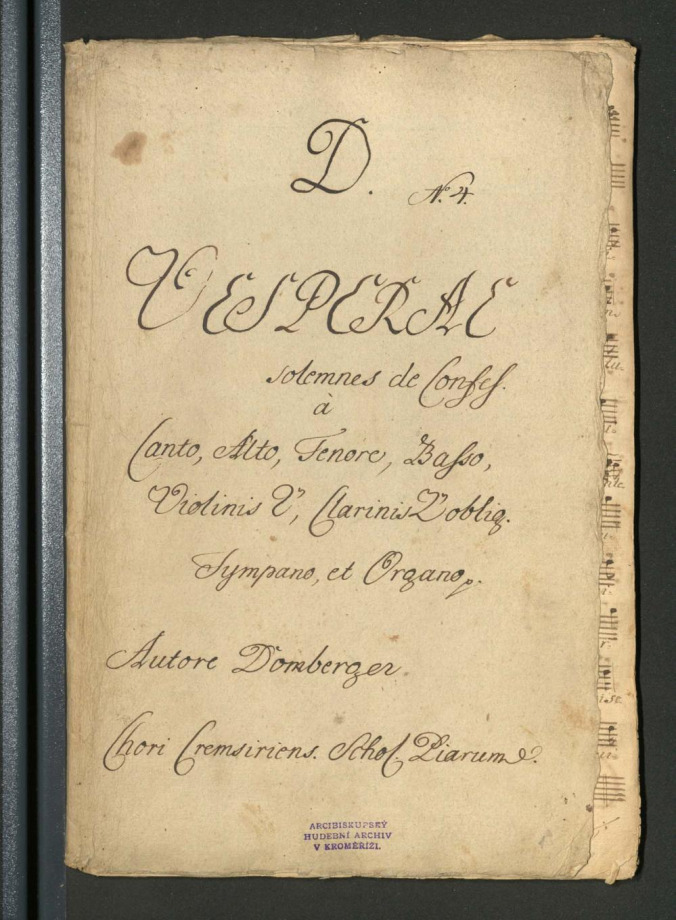 D.
No. 4.
VESPERAE
solemnes de Confes.
à
Canto, Alto, Tenore, Basso,
Violinis 2, Clarinis 2 obliq.
Tympano, et Organo
Autore Domberger
Chori Cremsiriens. Schol. Piarum
ARCIBISKUPSKÝ
HUDEBNÍ ARCHIV
V KROMĚŘÍŽI.